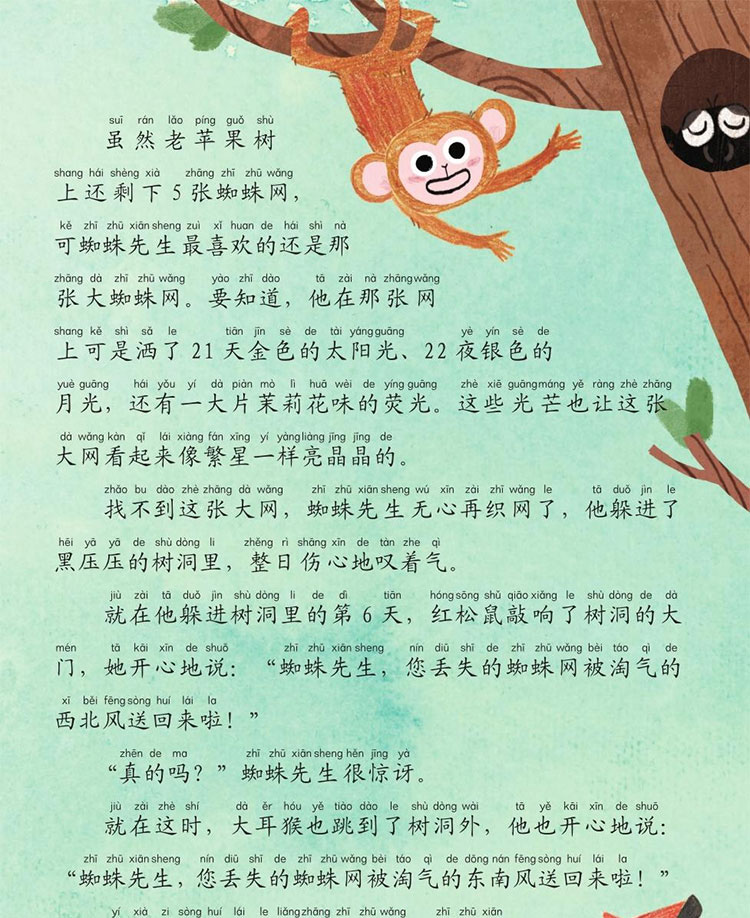 suī rán lǎo píng guǒ shù
虽然老苹果树
shang hái shèng xià zhāng zhī zhū wǎng
上还剩下5张蜘蛛网，
kě zhī zhū xiān sheng zuì xǐ huan de hái shì nà
可蜘蛛先生最喜欢的还是那
zhāng dà zhī zhū wǎng yào zhī dào tā zài nà zhāng wǎng
张大蜘蛛网。要知道，他在那张网
shang kě shì sǎ le tiān jīn sè de tài yáng guāng yè yín sè de
上可是洒了21天金色的太阳光、22夜银色的
yuè guāng hái yǒu yí dà piàn mò lì huā wèi de yíng guāng zhè xiē guāng máng yě ràng zhè zhāng
月光，还有一大片茉莉花味的荧光。这些光芒也让这张
dà wǎng kàn qǐ lái xiàng fán xīng yí yàng liàng jīng jīng de
大网看起来像繁星一样亮晶晶的。
zhǎo bu dào zhè zhāng dà wǎng zhī zhū xiān sheng wú xīn zài zhī wǎng le tā duǒ jìn le
找不到这张大网，蜘蛛先生无心再织网了，他躲进了
hēi yā yā de shù dòng li zhěng rì shāng xīn de tàn zhe qì
黑压压的树洞里，整日伤心地叹着气。
jiù zài tā duǒ jìn shù dòng li de dì tiān hóng sōng shǔ qiāo xiǎng le shù dòng de dà
就在他躲进树洞里的第6天，红松鼠敲响了树洞的大
mén tā kāi xīn de shuō zhī zhū xiān sheng nín diū shī de zhī zhū wǎng bèi táo qì de
门，她开心地说：“蜘蛛先生，您丢失的蜘蛛网被淘气的
xī běi fēng sòng huí lái la
西北风送回来啦！”
zhēn de ma zhī zhū xiān sheng hěn jīng yà
“真的吗？”蜘蛛先生很惊讶。
jiù zài zhè shí dà ěr hóu yě tiào dào le shù dòng wài tā yě kāi xīn de shuō
就在这时，大耳猴也跳到了树洞外，他也开心地说：
zhī zhū xiān sheng nín diū shī de zhī zhū wǎng bèi táo qì de dōng nán fēng sòng huí lái la
“蜘蛛先生，您丢失的蜘蛛网被淘气的东南风送回来啦！”
yí xià zi sòng huí lái liǎng zhāng zhī zhū wǎng zhī zhū xiān